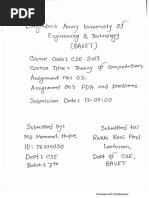 Bangladesh Army University of
Engineering & Technology
(BAUET)
Course Code: CSE-3107
Course Title: Theory of Computation
Assignment no: 02
Assignment on: PDA and problems.
Submission Date: 17-07-20
Submitted by:
Submitted to:
Md Mozammel Haque
Rakhi Rani Paul
ID: 18104050
Lecturer,
Dept: CSE
Dept of CSE,
Batch: 7th
BAUET